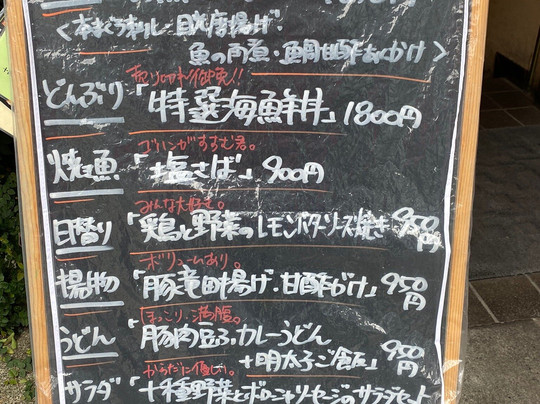 魚の南蛮・鯛甘酢あんかけ>
売り切れ御免!!
どんぶり「特選海鮮丼」1800円
ゴハンがすすむ君。
焼魚「塩さば」900円
みんな大好き。
日替り「鶏と野菜のレモンバターソース焼き」950円
ボリュームあり。
揚物「豚竜田揚げ・甘酢がけ」950円
ほっこり満腹。
うどん「豚肉豆ふカレーうどん
+明太子ご飯」950円
からだに優しい。
サラダ「十種野菜とボロニャソーセージのサラダセット